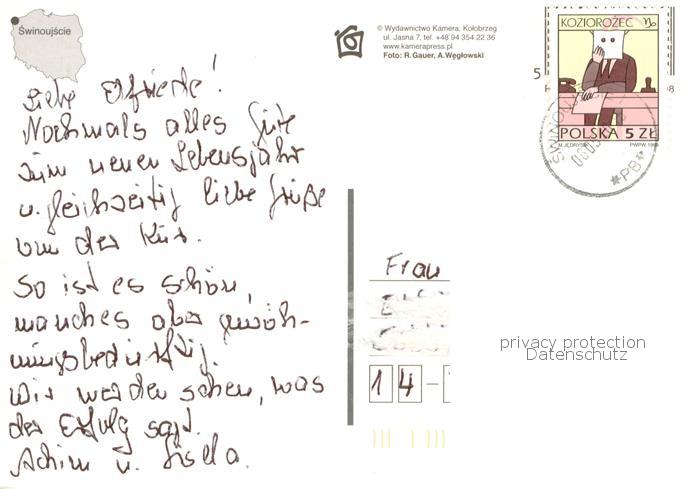 Świnoujście
© Wydawnictwo Kamera, Kołobrzeg
ul. Jasna 7, tel. +48 94 354 22 36
www.kamerapress.pl
Foto: R. Gauer, A. Węgłowski
KOZIOROŻEC
5
8
POLSKA 5 ZŁ
M. JĘDRYSIK
PWPW 1996
*PB*
Liebe Elfriede!
Nochmals alles Gute
zum neuen Lebensjahr
u. gleichzeitig liebe Grüße
von der Kur.
So ist es schön,
manches aber gewöh-
nungsbedürftig.
Wir werden sehen, was
der Erfolg sagt.
Achim u. Gisela.
Frau
14-
privacy protection
Datenschutz